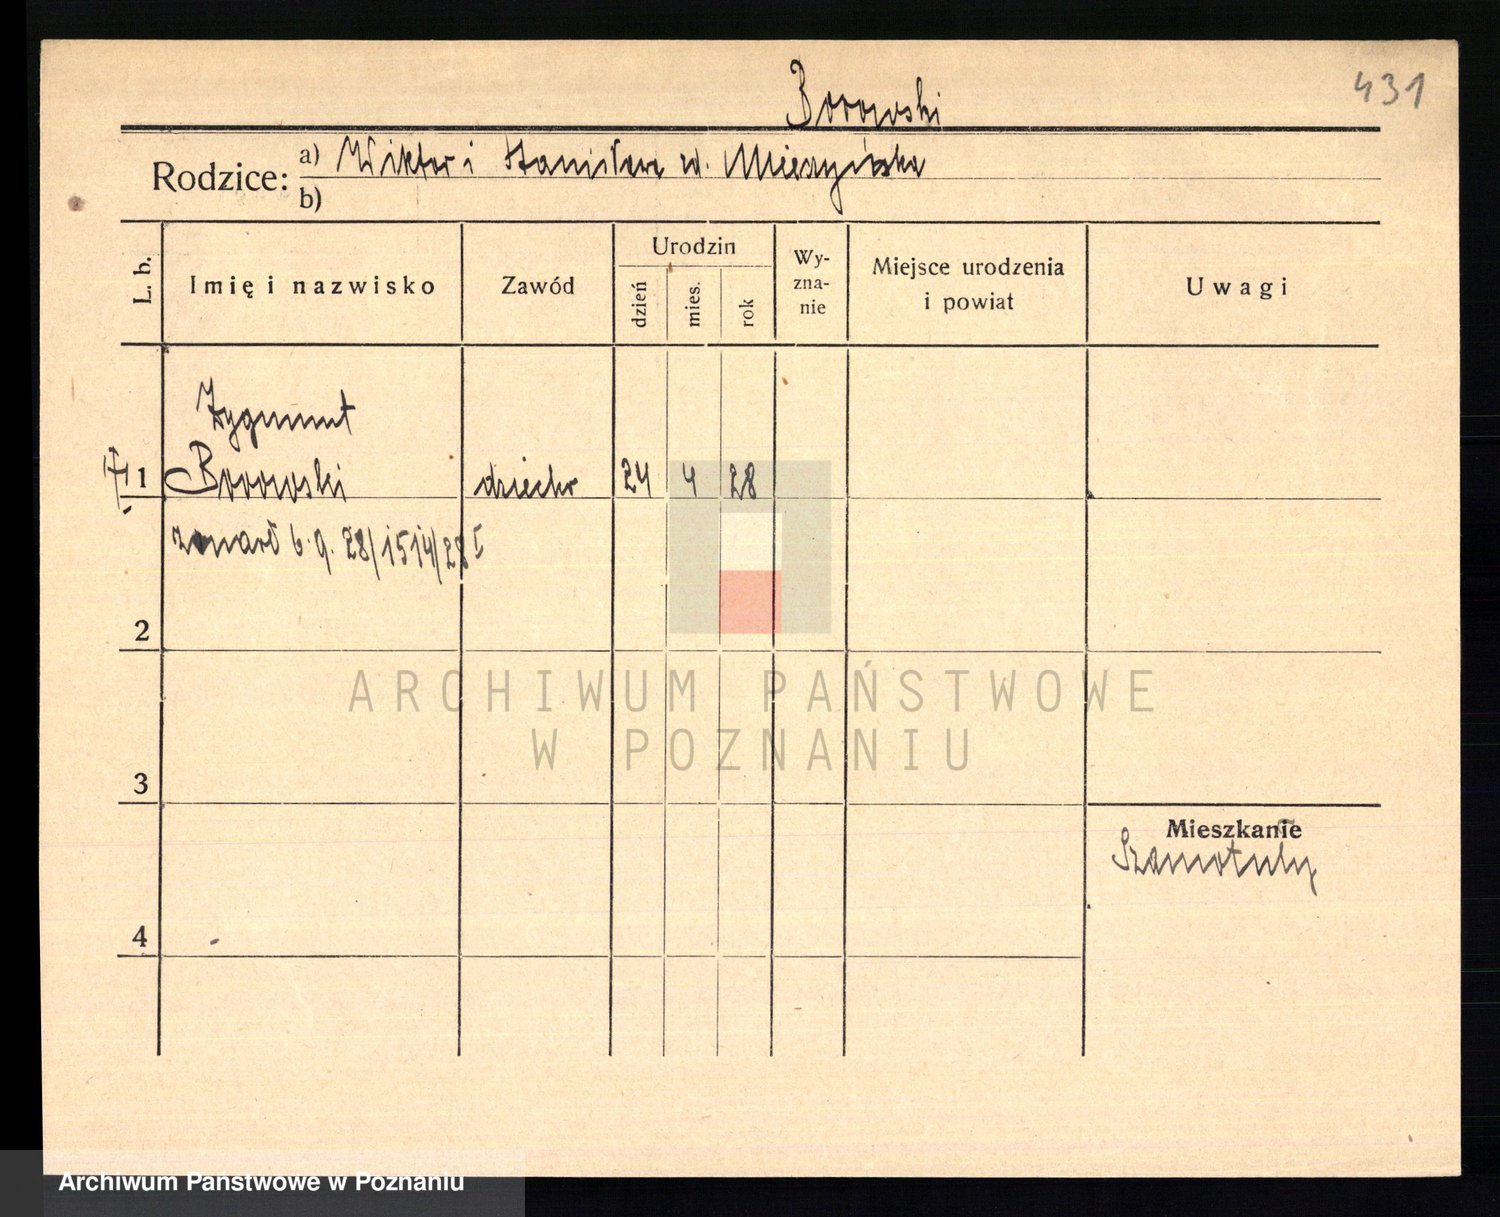 431
Borowski
Rodzice:
a) Wiktor i Stanisława z d.
b)
L. b.
Imię i nazwisko
Zawód
Urodzin
dzień
mies.
rok
Wy-
zna-
nie
Miejsce urodzenia
i powiat
Uwagi
Zygmunt
1 Borowski dziecko 24 4 28
zmarł 6.9.28/1514/28
2
3
4
Mieszkanie
Szamotuły
ARCHIWUM PAŃSTWOWE
W POZNANIU
Archiwum Państwowe w Poznaniu